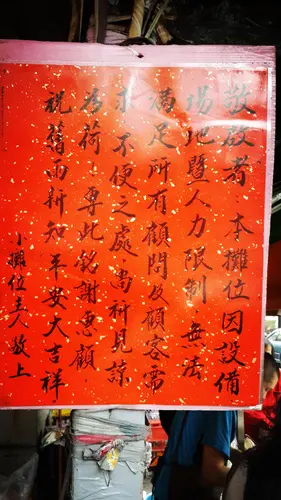 敬啟者：本攤位因設備
場地暨人力限制，無法
滿足所有顧問及顧客需
求，不便之處，尚祈見諒
為荷！專此銘謝惠顧．
祝舊雨新知平安大吉祥
小攤位主人敬上